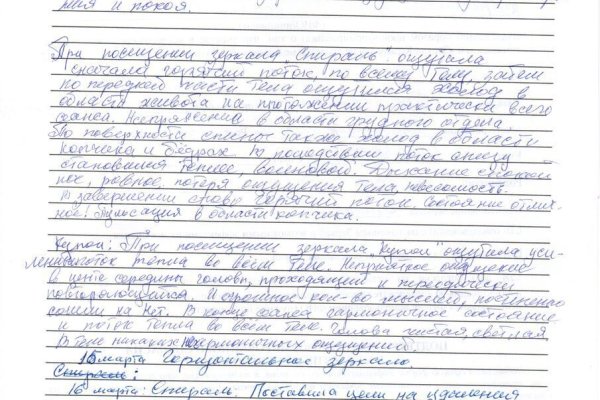 ния и покоя.
При посещении зеркала "Спираль" ощутила
сначала горячий поток, по всему телу, затем
по передней части тела ощущался холод в
области живота на протяжении практически всего
сеанса. Напряжение в области грудного отдела.
По поверхности спины также холод в области
копчика и бедрах. В последствии поток снизу
становился теплее, волновой. Дыхание спокой
ное, ровное, потеря ощущения тела, невесомость.
В завершении снова горячий поток. Состояние отлич-
ное. Пульсация в области копчика.
Купол: При посещении зеркала "Купол" ощутила уси-
ление поток тепла во всем теле. Неприятное ощущение
в центе середины головы, проходящий и переодически
повторяющийся. И огромное кол-во мыслей, постепенно
сошли на нет. В конце сеанса гармоничное состояние
и поток тепла во всем теле. Голова чистая, светлая,
в теле никаких не гармоничных ощущений.
15 марта Горизонтальное зеркало.
Спираль:
16 марта: Спираль. Поставила цели на удаления